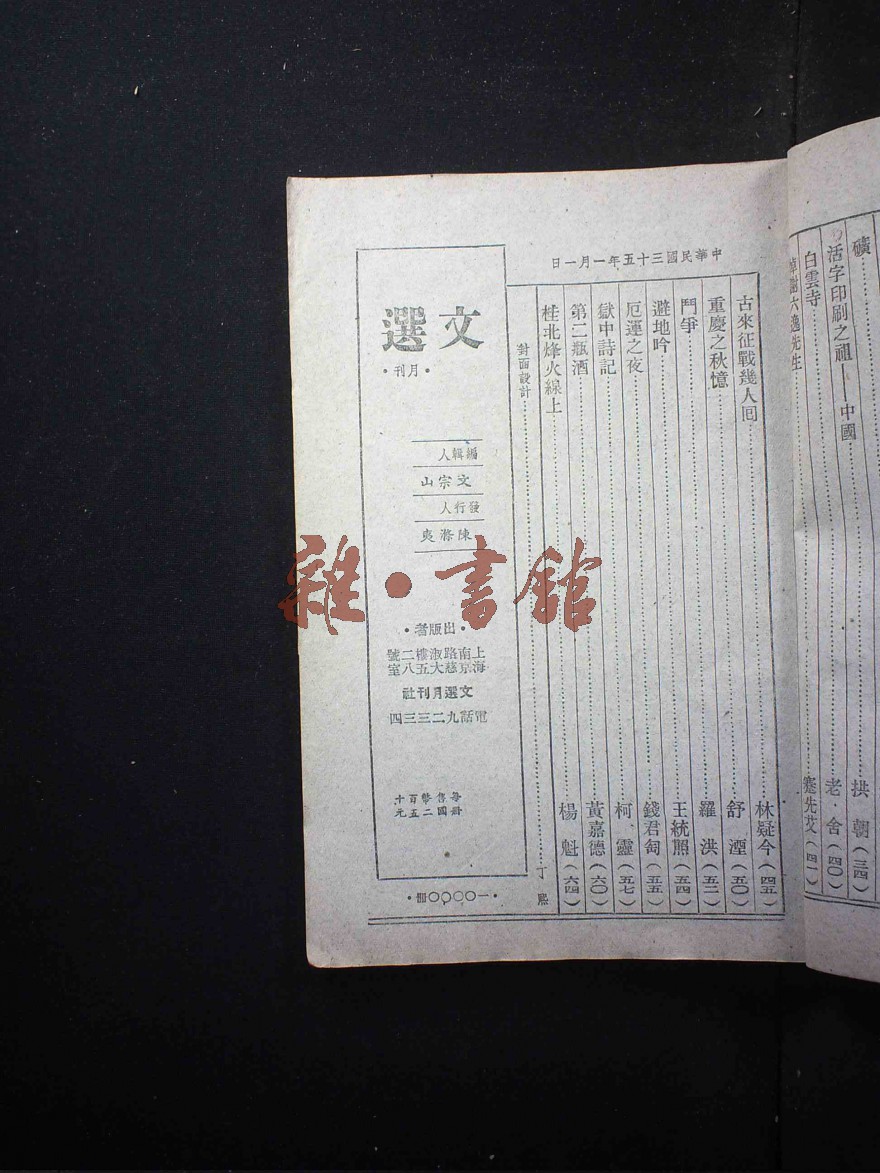 礦……拱朝（三四）
活字印刷之祖——中國……老舍（四〇）
白雲寺……蹇先艾（四一）
六逸先生
中華民國三十五年一月一日
古來征戰幾人囘……林疑今（四五）
重慶之秋憶……舒湮（五〇）
鬥爭……羅洪（五二）
避地吟……王統照（五四）
厄運之夜……錢君匋（五五）
獄中詩記……柯靈（五七）
第二瓶酒……黃嘉德（六〇）
桂北烽火線上……楊魁（六四）
對面設計……丁熙
文選
・月刊・
編輯人
文宗山
發行人
陳滌夷
・出版者・
上海南京路慈淑大樓五二八號室
文選月刊社
電話九二三三四
每冊售國幣二百五十元
・一〇〇〇〇冊・
雜・書館